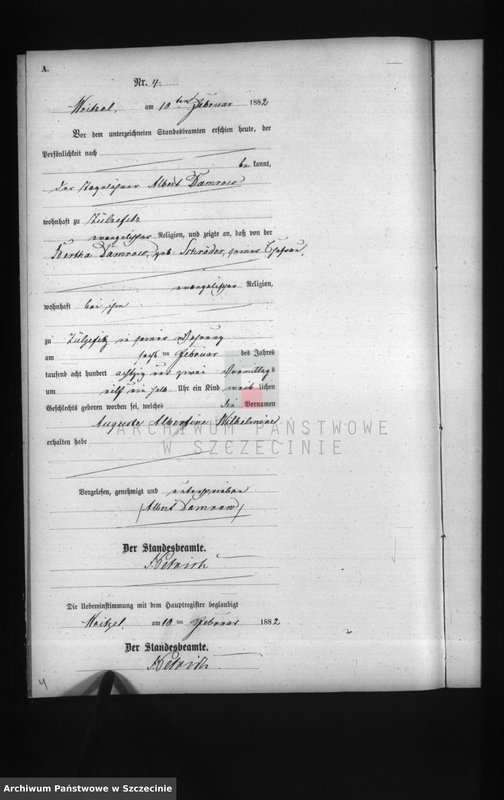 A.
Nr. 4.
Weitzel, am 10ten Februar 1882
Vor dem unterzeichneten Standesbeamten erschien heute, der
Persönlichkeit nach
be kannt,
der Tagelöhner Albert Damrow
wohnhaft zu Külzefitz
evangelischer Religion, und zeigte an, daß von der
Bertha Damrow, geb. Schröder, seiner Ehefrau,
evangelischer Religion,
wohnhaft bei ihm
zu Külzefitz in seiner Wohnung
am sechsten Februar des Jahres
tausend acht hundert achtzig und zwei Vormittags
um elf ein halb Uhr ein Kind weib lichen
Geschlechts geboren worden sei, welches die Vornamen
Auguste Albertine Wilhelmine
erhalten habe
ARCHIWUM PAŃSTWOWE
W SZCZECINIE
Vorgelesen, genehmigt und unterschrieben
(Albert Damrow)
Der Standesbeamte.
Die Uebereinstimmung mit dem Hauptregister beglaubigt
Weitzel, am 10ten Februar 1882
Der Standesbeamte.
4
Archiwum Państwowe w Szczecinie